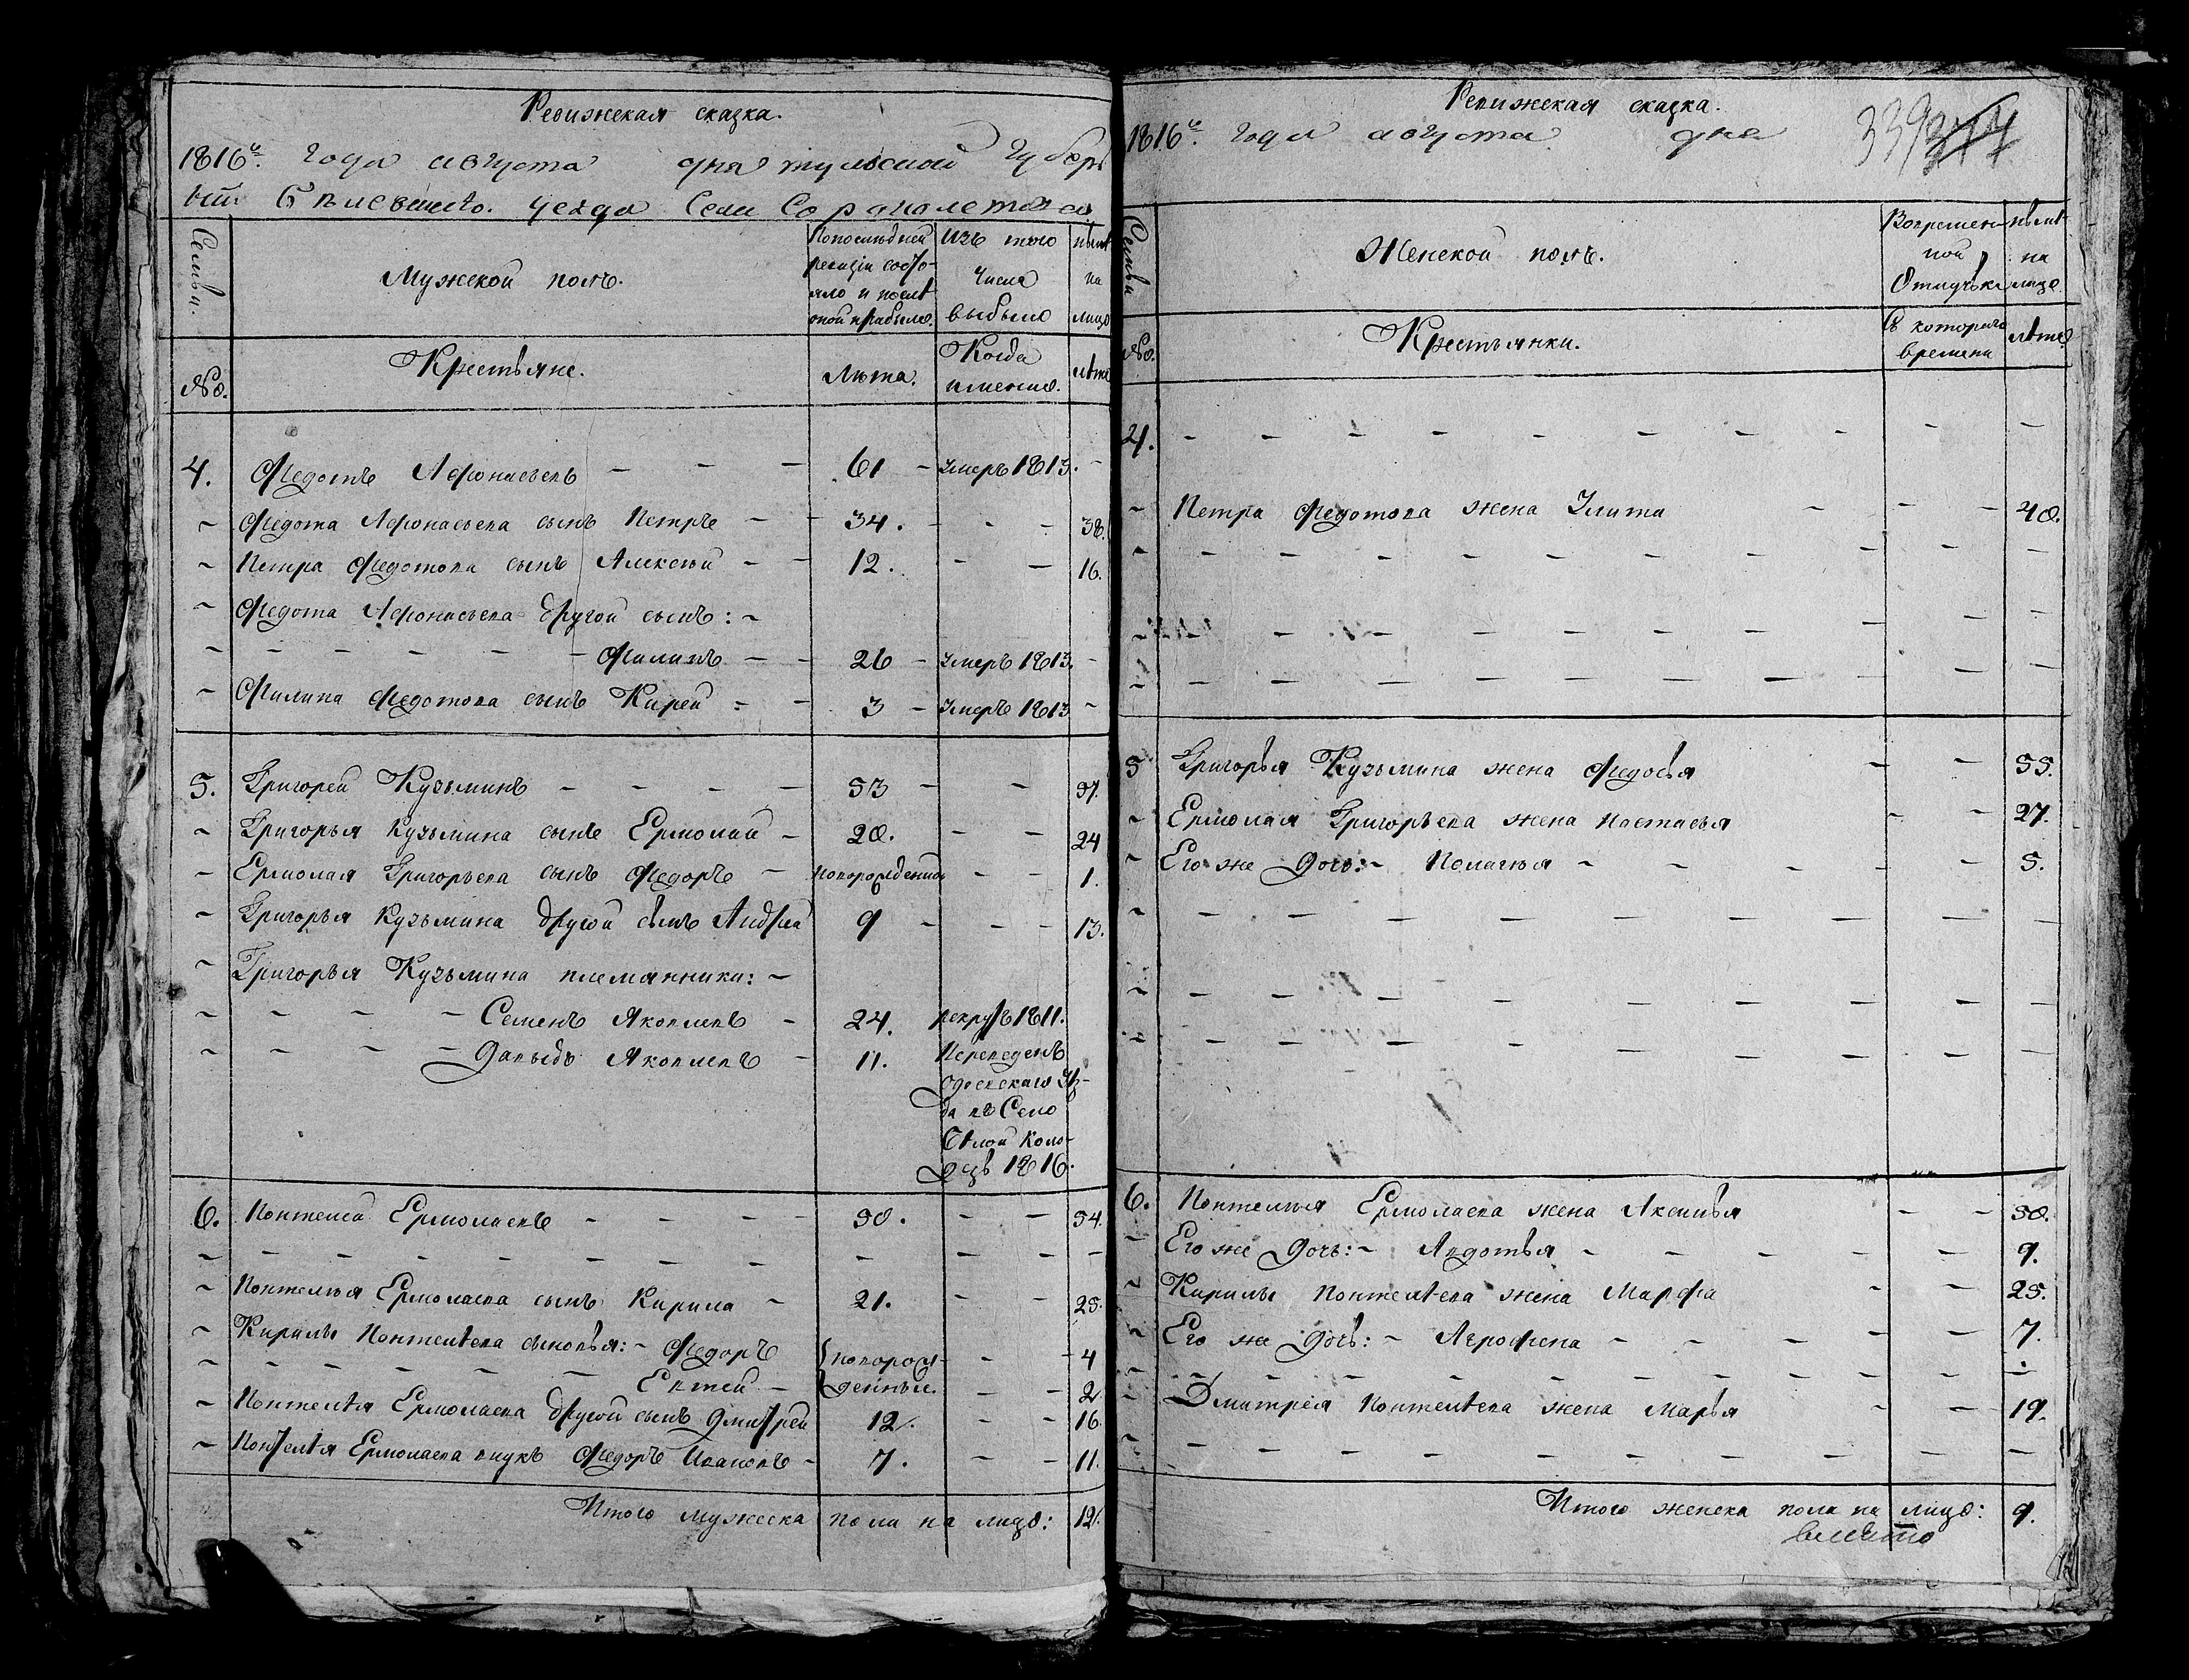 Ревижская сказка.
1816го. года августа дня тульской губер
нiи Бѣлевшего. уезда Села
Семьи.
Мужской полъ.
Попослѣдней ревизiи состо-яло и послѣ оной прибыло.
Изъ того числа выбыло
нынѣ на лицо
№.
Крестьяне.
Лѣта.
Когда имянно.
лѣта
4. Федотъ Афонасьевъ - - - 61 - умеръ 1813. -
- Федота Афонасьева сынъ Петръ - - 34. - - - 38.
- Петра Федотова сынъ Алексѣй - - 12. - - 16.
- Федота Афонасьева другой сынъ: -
- - - - - - Филипъ - - 26 - умеръ 1813. -
- Филипа Федотова сынъ Кирей - - 3 - умеръ 1813 -
5. Григорей Кузьминъ - - - - 53 - - 57.
- Григорья Кузьмина сынъ Ермолай - 20. - - 24
- Ермолая Григорьева сынъ Федоръ - новорожденной - - 1.
- Григорья Кузьмина другой сынъ Андрей 9 - - - 13.
- Григорья Кузьмина племянники: -
- - - - Семенъ Яковлевъ - 24. рекрутъ 1811.
- - - - Давыдъ Яковлевъ - 11. Переведенъ
одоевскаго уѣз-
да въ Село
Бѣлой Коло-
дезь 1816.
6. Понтелей Ермолаевъ - - - - 50. - - 54.
- - - - - - - - - - - -
- Понтелѣя Ермолаева сынъ Кирила - 21. - - 25.
- Кирилы Понтелѣева сыновья: - Федоръ { новорож- - - 4
- - - - - - Евтей - { денныя. - - 2
- Понтелѣя Ермолаева другой сынъ Дмитрей 12. - - 16
- Понтелѣя Ермолаева внукъ Федоръ Ивановъ - 7. - - 11.
Итого мужеска пола на лицо: 12.
Ревижская сказка.
1816го. года августа дня
339 
Семьи
Женской полъ.
Вовремен-ной Отлучькѣ
нынѣ на лицо
№.
Крестьянки.
Съ котораго времени
лѣта
4. - - - - - - - - - -
- Петра Федотова жена Улита - - - 40.
- - - - - - - - - - -
- - - - - - - - - -
- - - - - - - - - -
5 Григорья Кузьмина жена Федосья - - 55.
- Ермолая Григорьева жена Настасья - - 27.
- Его же дочь: - Пелагѣя - - - - - 5.
- - - - - - - - - - -
- - - - - - - - - -
- - - - - - - - - -
6. Понтелѣя Ермолаева жена Аксинья - - 50.
- Его же дочь: - Авдотья - - - - - - 9.
- Кирилы Понтелѣева жена Марфа - - 25.
- Его же дочь: - Агрофена - - - - - 7.
- - - - - - - - - - -
- Дмитрея Понтелѣева жена Марья - - 19.
- - - - - - - - - - -
Итого женска пола на лицо: 9.